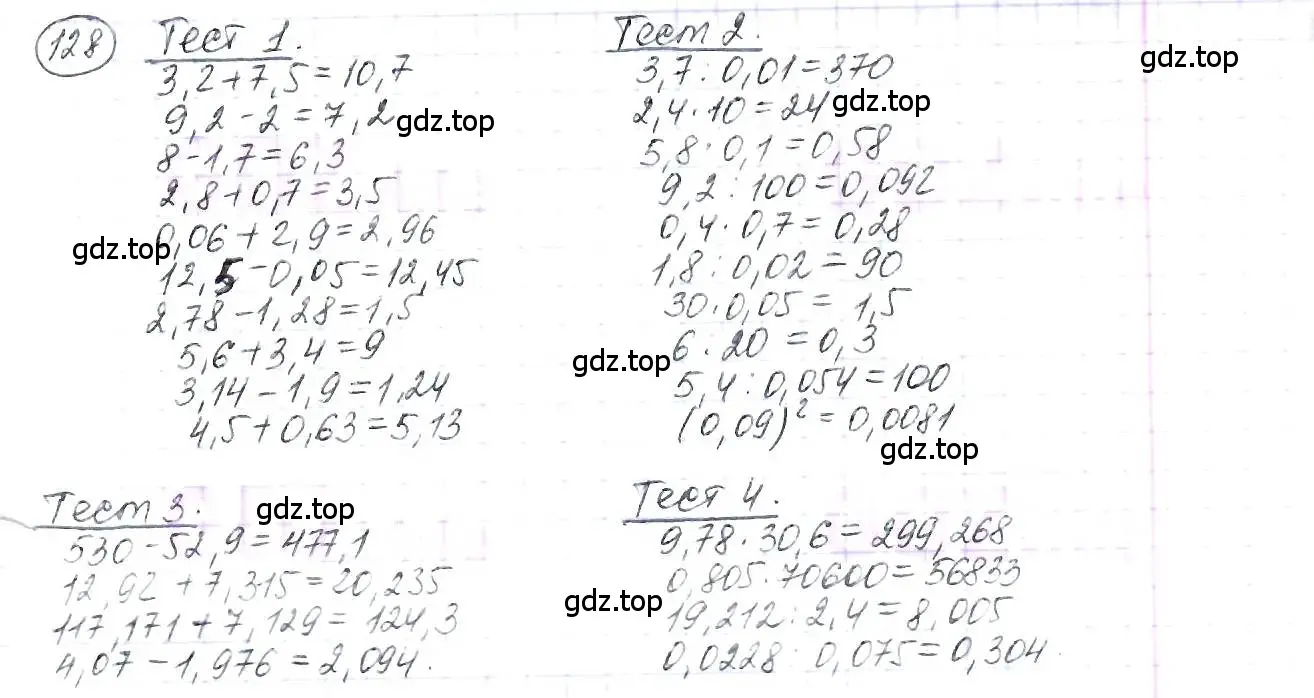 128
Тест 1.
3,2+7,5=10,7
9,2-2=7,2
8-1,7=6,3
2,8+0,7=3,5
0,06+2,9=2,96
12,5-0,05=12,45
2,78-1,28=1,5
5,6+3,4=9
3,14-1,9=1,24
4,5+0,63=5,13
Тест 2.
3,7:0,01=370
2,4·10=24
5,8·0,1=0,58
9,2:100=0,092
0,4·0,7=0,28
1,8:0,02=90
30·0,05=1,5
6·20=0,3
5,4:0,054=100
(0,09)²=0,0081
Тест 3.
530-52,9=477,1
12,92+7,315=20,235
117,171+7,129=124,3
4,07-1,976=2,094.
Тест 4.
9,78·30,6=299,268
0,805·70600=56833
19,212:2,4=8,005
0,0228:0,075=0,304.
gdz.top
gdz.top
gdz.top
gdz.top
gdz.top
gdz.top
gdz.top
gdz.top